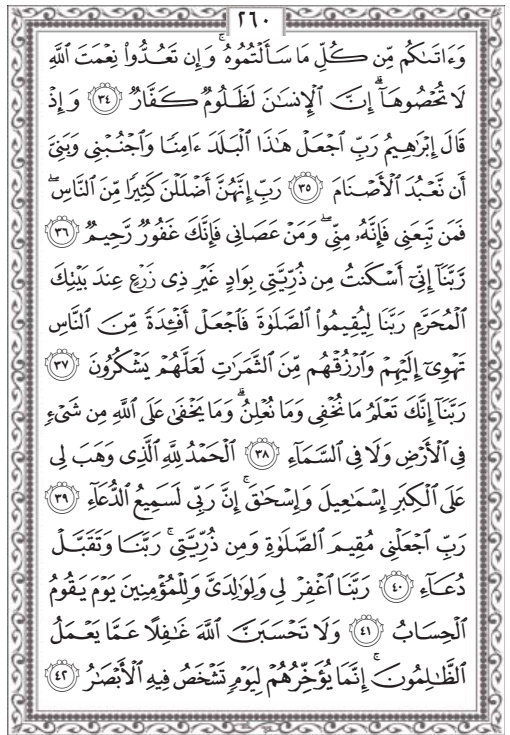 ٢٦٠
وَءَاتَىٰكُم مِّن كُلِّ مَا سَأَلْتُمُوهُ ۚ وَإِن تَعُدُّوا۟ نِعْمَتَ ٱللَّهِ
لَا تُحْصُوهَآ ۗ إِنَّ ٱلْإِنسَٰنَ لَظَلُومٌ كَفَّارٌ ٣٤ وَإِذْ
قَالَ إِبْرَٰهِيمُ رَبِّ ٱجْعَلْ هَٰذَا ٱلْبَلَدَ ءَامِنًا وَٱجْنُبْنِى وَبَنِىَّ
أَن نَّعْبُدَ ٱلْأَصْنَامَ ٣٥ رَبِّ إِنَّهُنَّ أَضْلَلْنَ كَثِيرًا مِّنَ ٱلنَّاسِ ۖ
فَمَن تَبِعَنِى فَإِنَّهُۥ مِنِّى ۖ وَمَنْ عَصَانِى فَإِنَّكَ غَفُورٌ رَّحِيمٌ ٣٦
رَّبَّنَآ إِنِّىٓ أَسْكَنتُ مِن ذُرِّيَّتِى بِوَادٍ غَيْرِ ذِى زَرْعٍ عِندَ بَيْتِكَ
ٱلْمُحَرَّمِ رَبَّنَا لِيُقِيمُوا۟ ٱلصَّلَوٰةَ فَٱجْعَلْ أَفْـِٔدَةً مِّنَ ٱلنَّاسِ
تَهْوِىٓ إِلَيْهِمْ وَٱرْزُقْهُم مِّنَ ٱلثَّمَرَٰتِ لَعَلَّهُمْ يَشْكُرُونَ ٣٧
رَبَّنَآ إِنَّكَ تَعْلَمُ مَا نُخْفِى وَمَا نُعْلِنُ ۗ وَمَا يَخْفَىٰ عَلَى ٱللَّهِ مِن شَىْءٍ
فِى ٱلْأَرْضِ وَلَا فِى ٱلسَّمَآءِ ٣٨ ٱلْحَمْدُ لِلَّهِ ٱلَّذِى وَهَبَ لِى
عَلَى ٱلْكِبَرِ إِسْمَٰعِيلَ وَإِسْحَٰقَ ۚ إِنَّ رَبِّى لَسَمِيعُ ٱلدُّعَآءِ ٣٩
رَبِّ ٱجْعَلْنِى مُقِيمَ ٱلصَّلَوٰةِ وَمِن ذُرِّيَّتِى ۚ رَبَّنَا وَتَقَبَّلْ
دُعَآءِ ٤٠ رَبَّنَا ٱغْفِرْ لِى وَلِوَٰلِدَىَّ وَلِلْمُؤْمِنِينَ يَوْمَ يَقُومُ
ٱلْحِسَابُ ٤١ وَلَا تَحْسَبَنَّ ٱللَّهَ غَٰفِلًا عَمَّا يَعْمَلُ
ٱلظَّٰلِمُونَ ۚ إِنَّمَا يُؤَخِّرُهُمْ لِيَوْمٍ تَشْخَصُ فِيهِ ٱلْأَبْصَٰرُ ٤٢